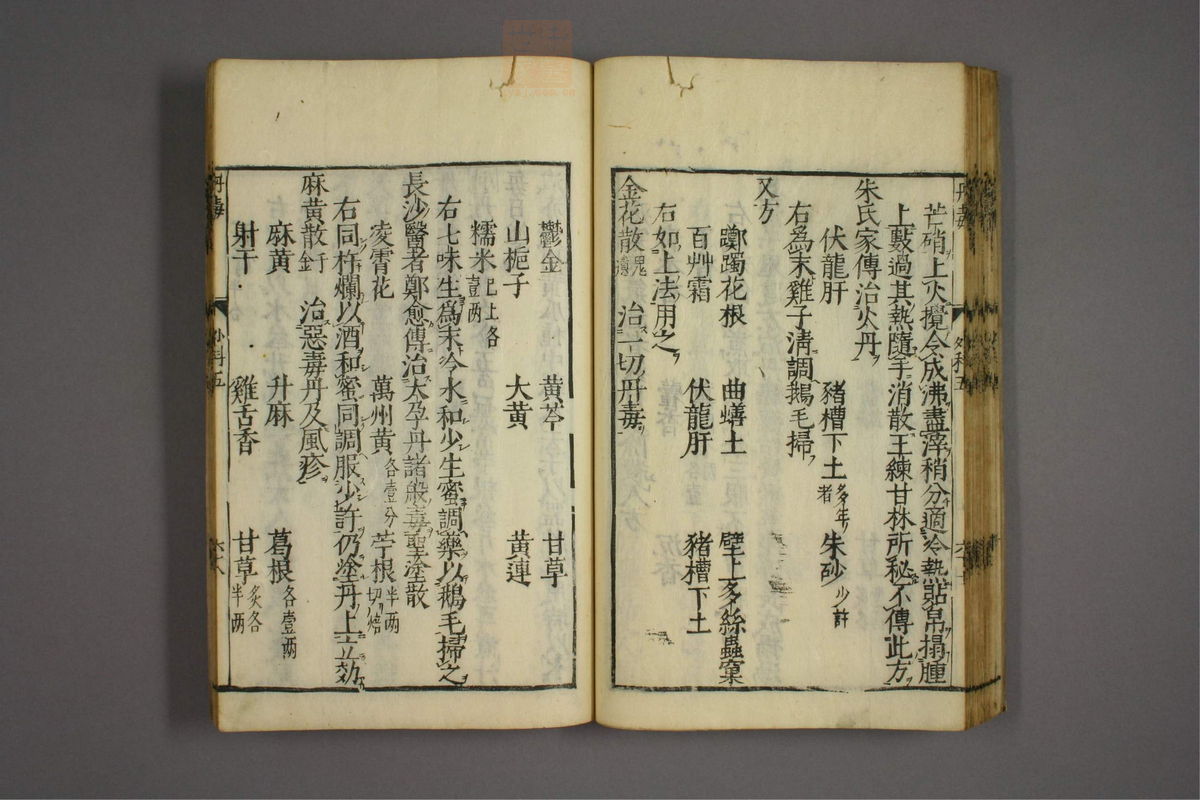 芒硝上火攪令成沸盡滓稍分適冷熱貼帛搨腫
上數過其熱隨手消散王練甘林所秘不傳此方
朱氏家傳治火丹
伏龍肝 豬槽下土多年者 朱砂少許
右為末雞子淸調鵝毛掃
又方
躑躅花根 曲蟮土 壁上多年絲蟲窠
百艸霜 伏龍肝 豬槽下土
右如上法用之
金花散 治一切丹毒
鬱金 黃芩 甘草
山梔子 大黃 黃連
糯米已上各壹兩
右七味生為末冷水和少生蜜調藥以鵝毛掃之
長沙醫者鄭愈傳治大孕丹諸般毒聖塗散
凌霄花 萬州黃各壹分 苧根半兩切焙
右同杵爛以酒和蜜同調服少許仍塗丹上立効
麻黃散 治惡毒丹及風疹
麻黃 升麻 葛根各壹兩
射干 雞舌香 甘草炙各半兩
丹毒 外科五